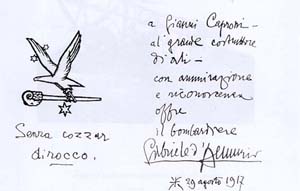 a Gianni Caproni -
al grande costruttore
di ali -
con ammirazione
e riconoscenza
offre
il bombardiere
Gabriele d'Annunzio
* 29 agosto 1917
Senza cozzar
dirocco.